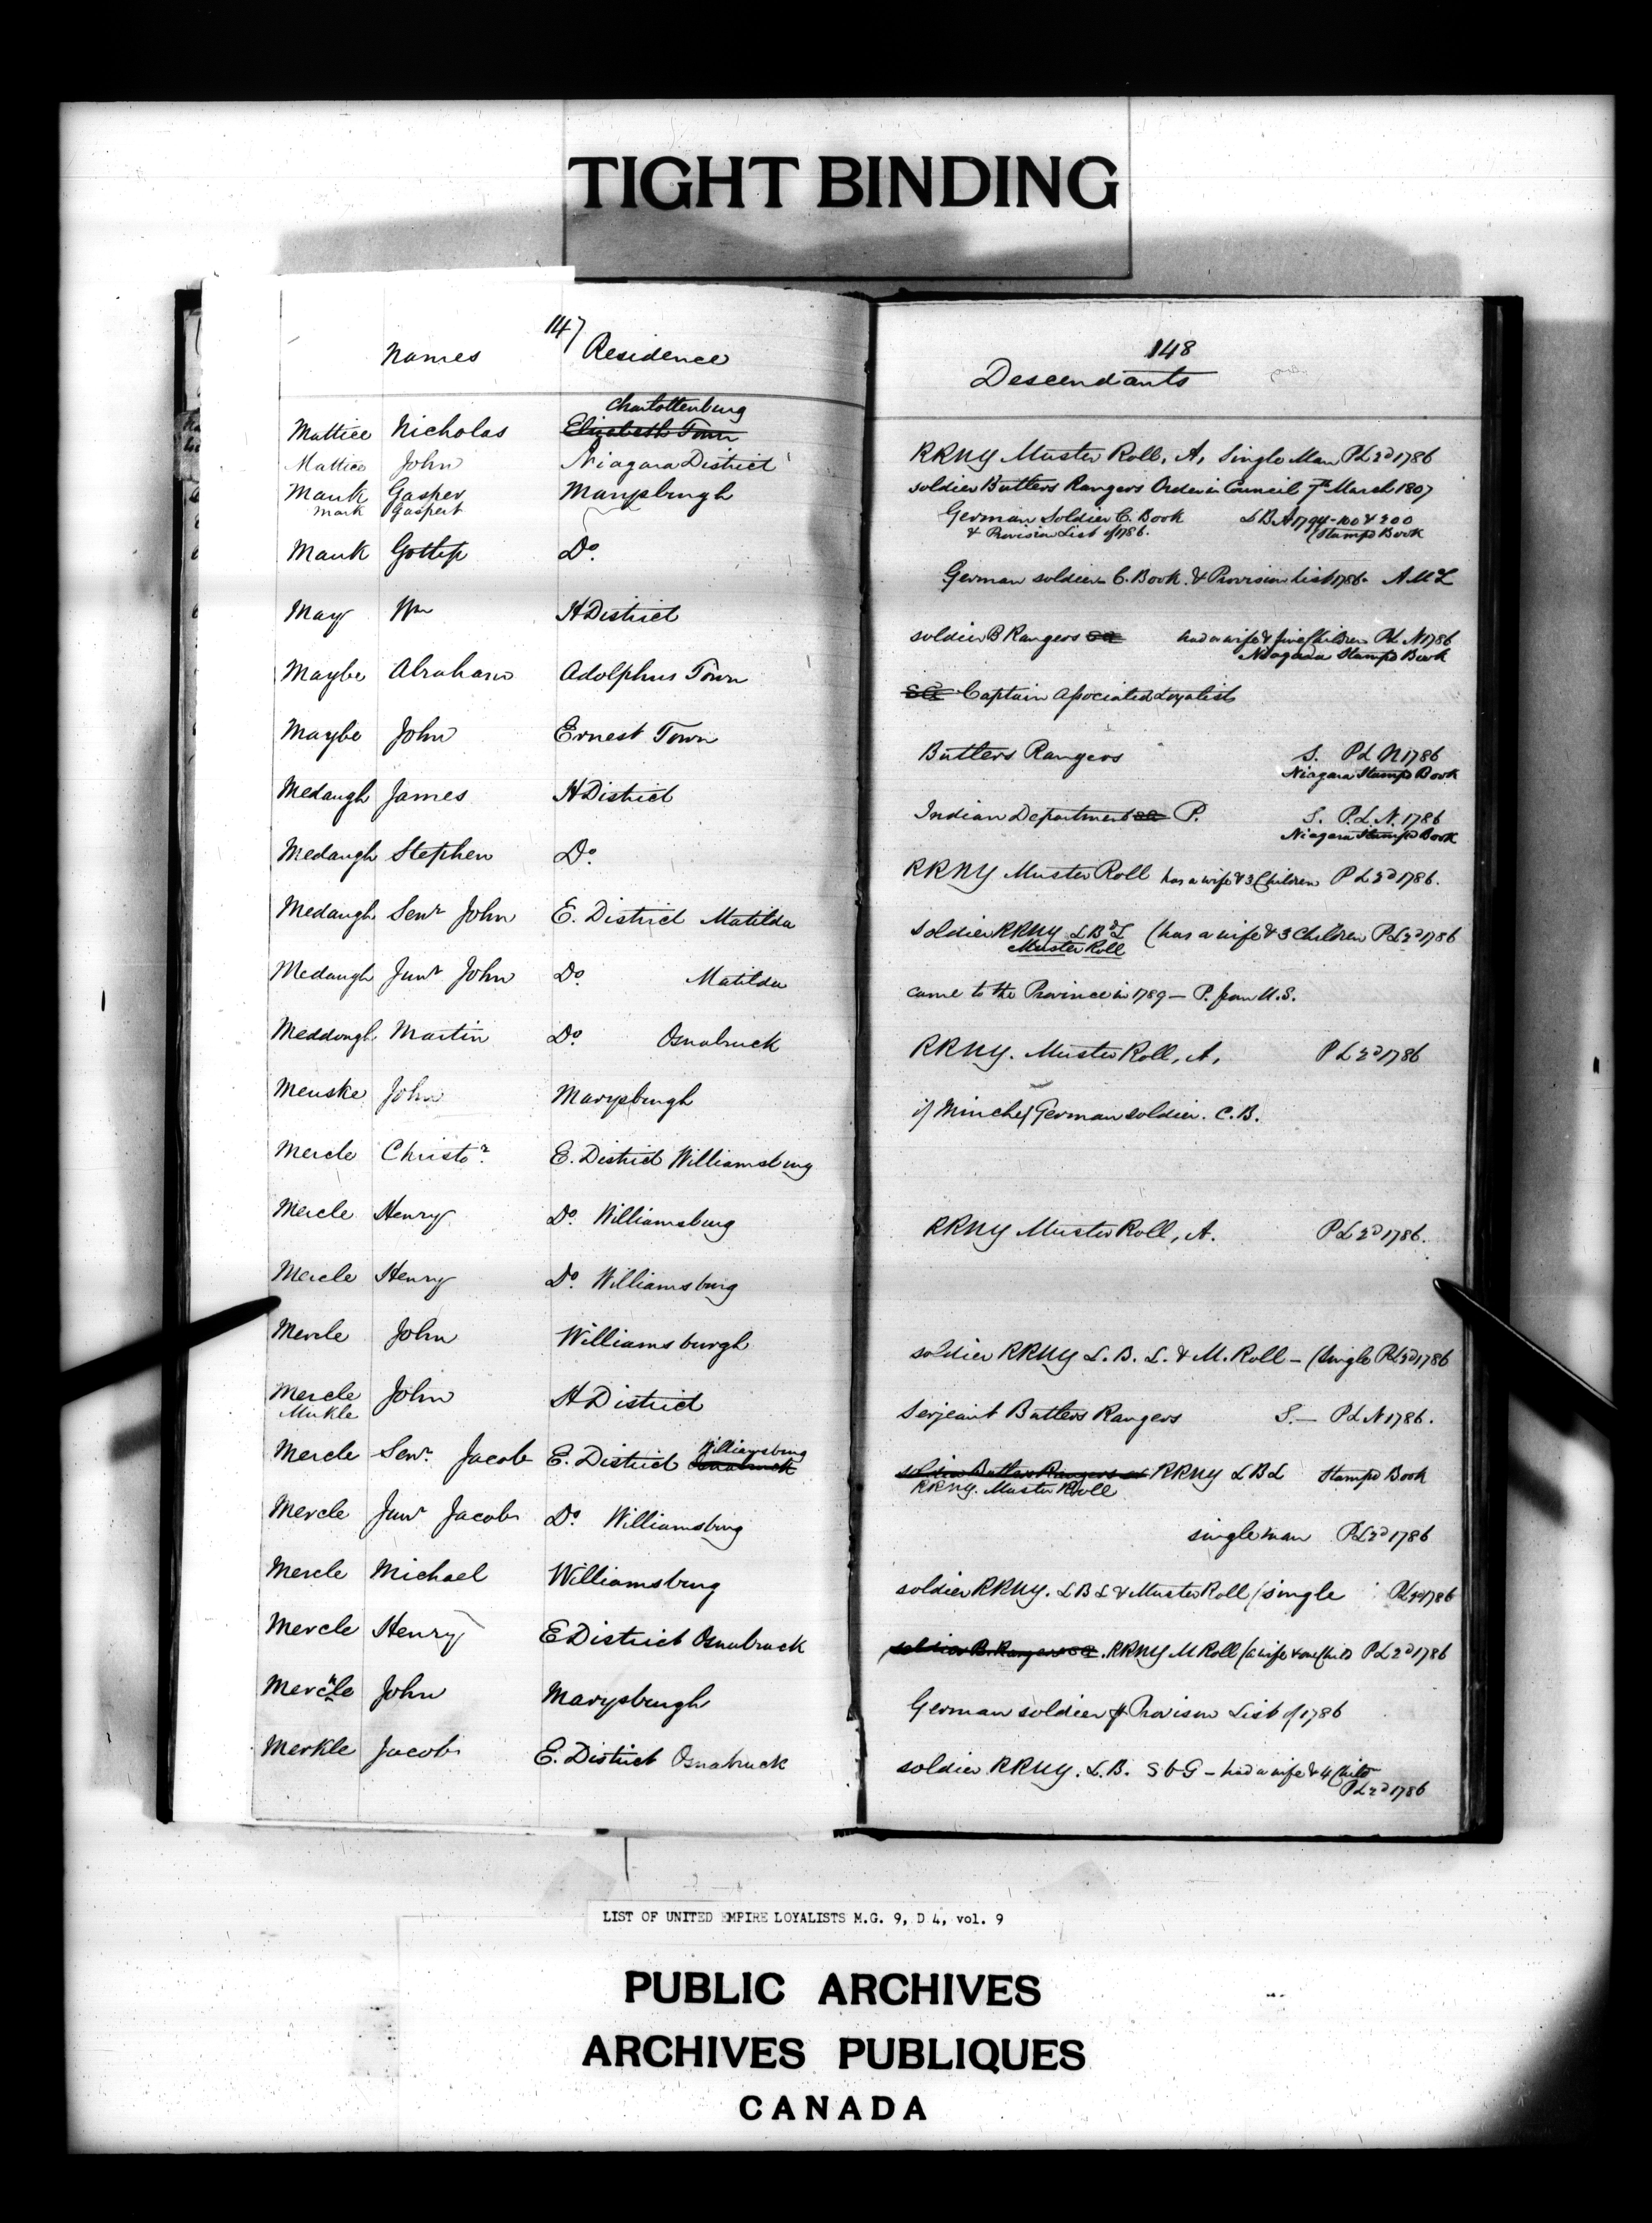 TIGHT BINDING
147
Names Residence
Charlottenburg
Mattice Nicholas Elizabeth Town
Mattice John Niagara District
Mauk Gasper Marysburgh
Mark Gaspert
Mauk Gottlip Do.
May Wm H District
Maybe Abraham Adolphus Town
Maybe John Ernest Town
Medaugh James H District
Medaugh Stephen Do.
Medaugh Senr John E. District Matilda
Medaugh Junr John Do. Matilda
Meddough Martin Do. Osnabruck
Menske John Marysburgh
Mercle Christor. E. District Williamsburg
Mercle Henry Do. Williamsburg
Mercle Henry Do. Williamsburg
Mercle John Williamsburgh
Mercle John H District
Mukle
Williamsburg
Mercle Senr. Jacob E. District Osnabruck
Mercle Junr Jacob Do Williamsburg
Mercle Michael Williamsburg
Mercle Henry E District Osnabruck
Mercle John Marysburgh
Merkle Jacob E. District Osnabruck
148
Descendants
RRNY Muster Roll, A, Single Man PL 2d 1786
soldier Butlers Rangers Order in Council 7th March 1807
German Soldier C. Book LBA 1794-100 & 200
& Provision List of 1786. (Stampd Book
German soldier C. Book & Provision list 1786. AML
soldier B Rangers SG had a wife & five Children PL N 1786
Niagara Stampd Book
SG Captain Associated Loyalists
Butlers Rangers S. PL N 1786
Niagara Stampd Book
Indian Department SG P. S. P.L.N. 1786
Niagara Stampd Book
RRNY Muster Roll has a wife & 3 Children PL 2d 1786.
soldier RRNY LBL (has a wife & 3 Children PL 2d 1786
Muster Roll
came to the Province in 1789 - P. from U.S.
RRNY. Muster Roll, A, PL 2d 1786
if Minche German soldier. C.B.
RRNY Muster Roll, A. PL 2d 1786.
soldier RRNY L.B.L. & M. Roll - (single PL 2d 1786
Serjeant Butlers Rangers S. - PL N 1786.
soldier Butlers Rangers RRNY LBL Stampd Book
RRNY. Muster Roll
single man PL 2d 1786
soldier RRNY. LBL & Muster Roll / single PL 2d 1786
soldier B. Rangers SG. RRNY M Roll (a wife & one Child PL 2d 1786
German soldier Provision List of 1786
soldier RRNY. L.B. S & G - had a wife & 4 Child
PL 2d 1786
LIST OF UNITED EMPIRE LOYALISTS M.G. 9, D 4, vol. 9
PUBLIC ARCHIVES
ARCHIVES PUBLIQUES
CANADA